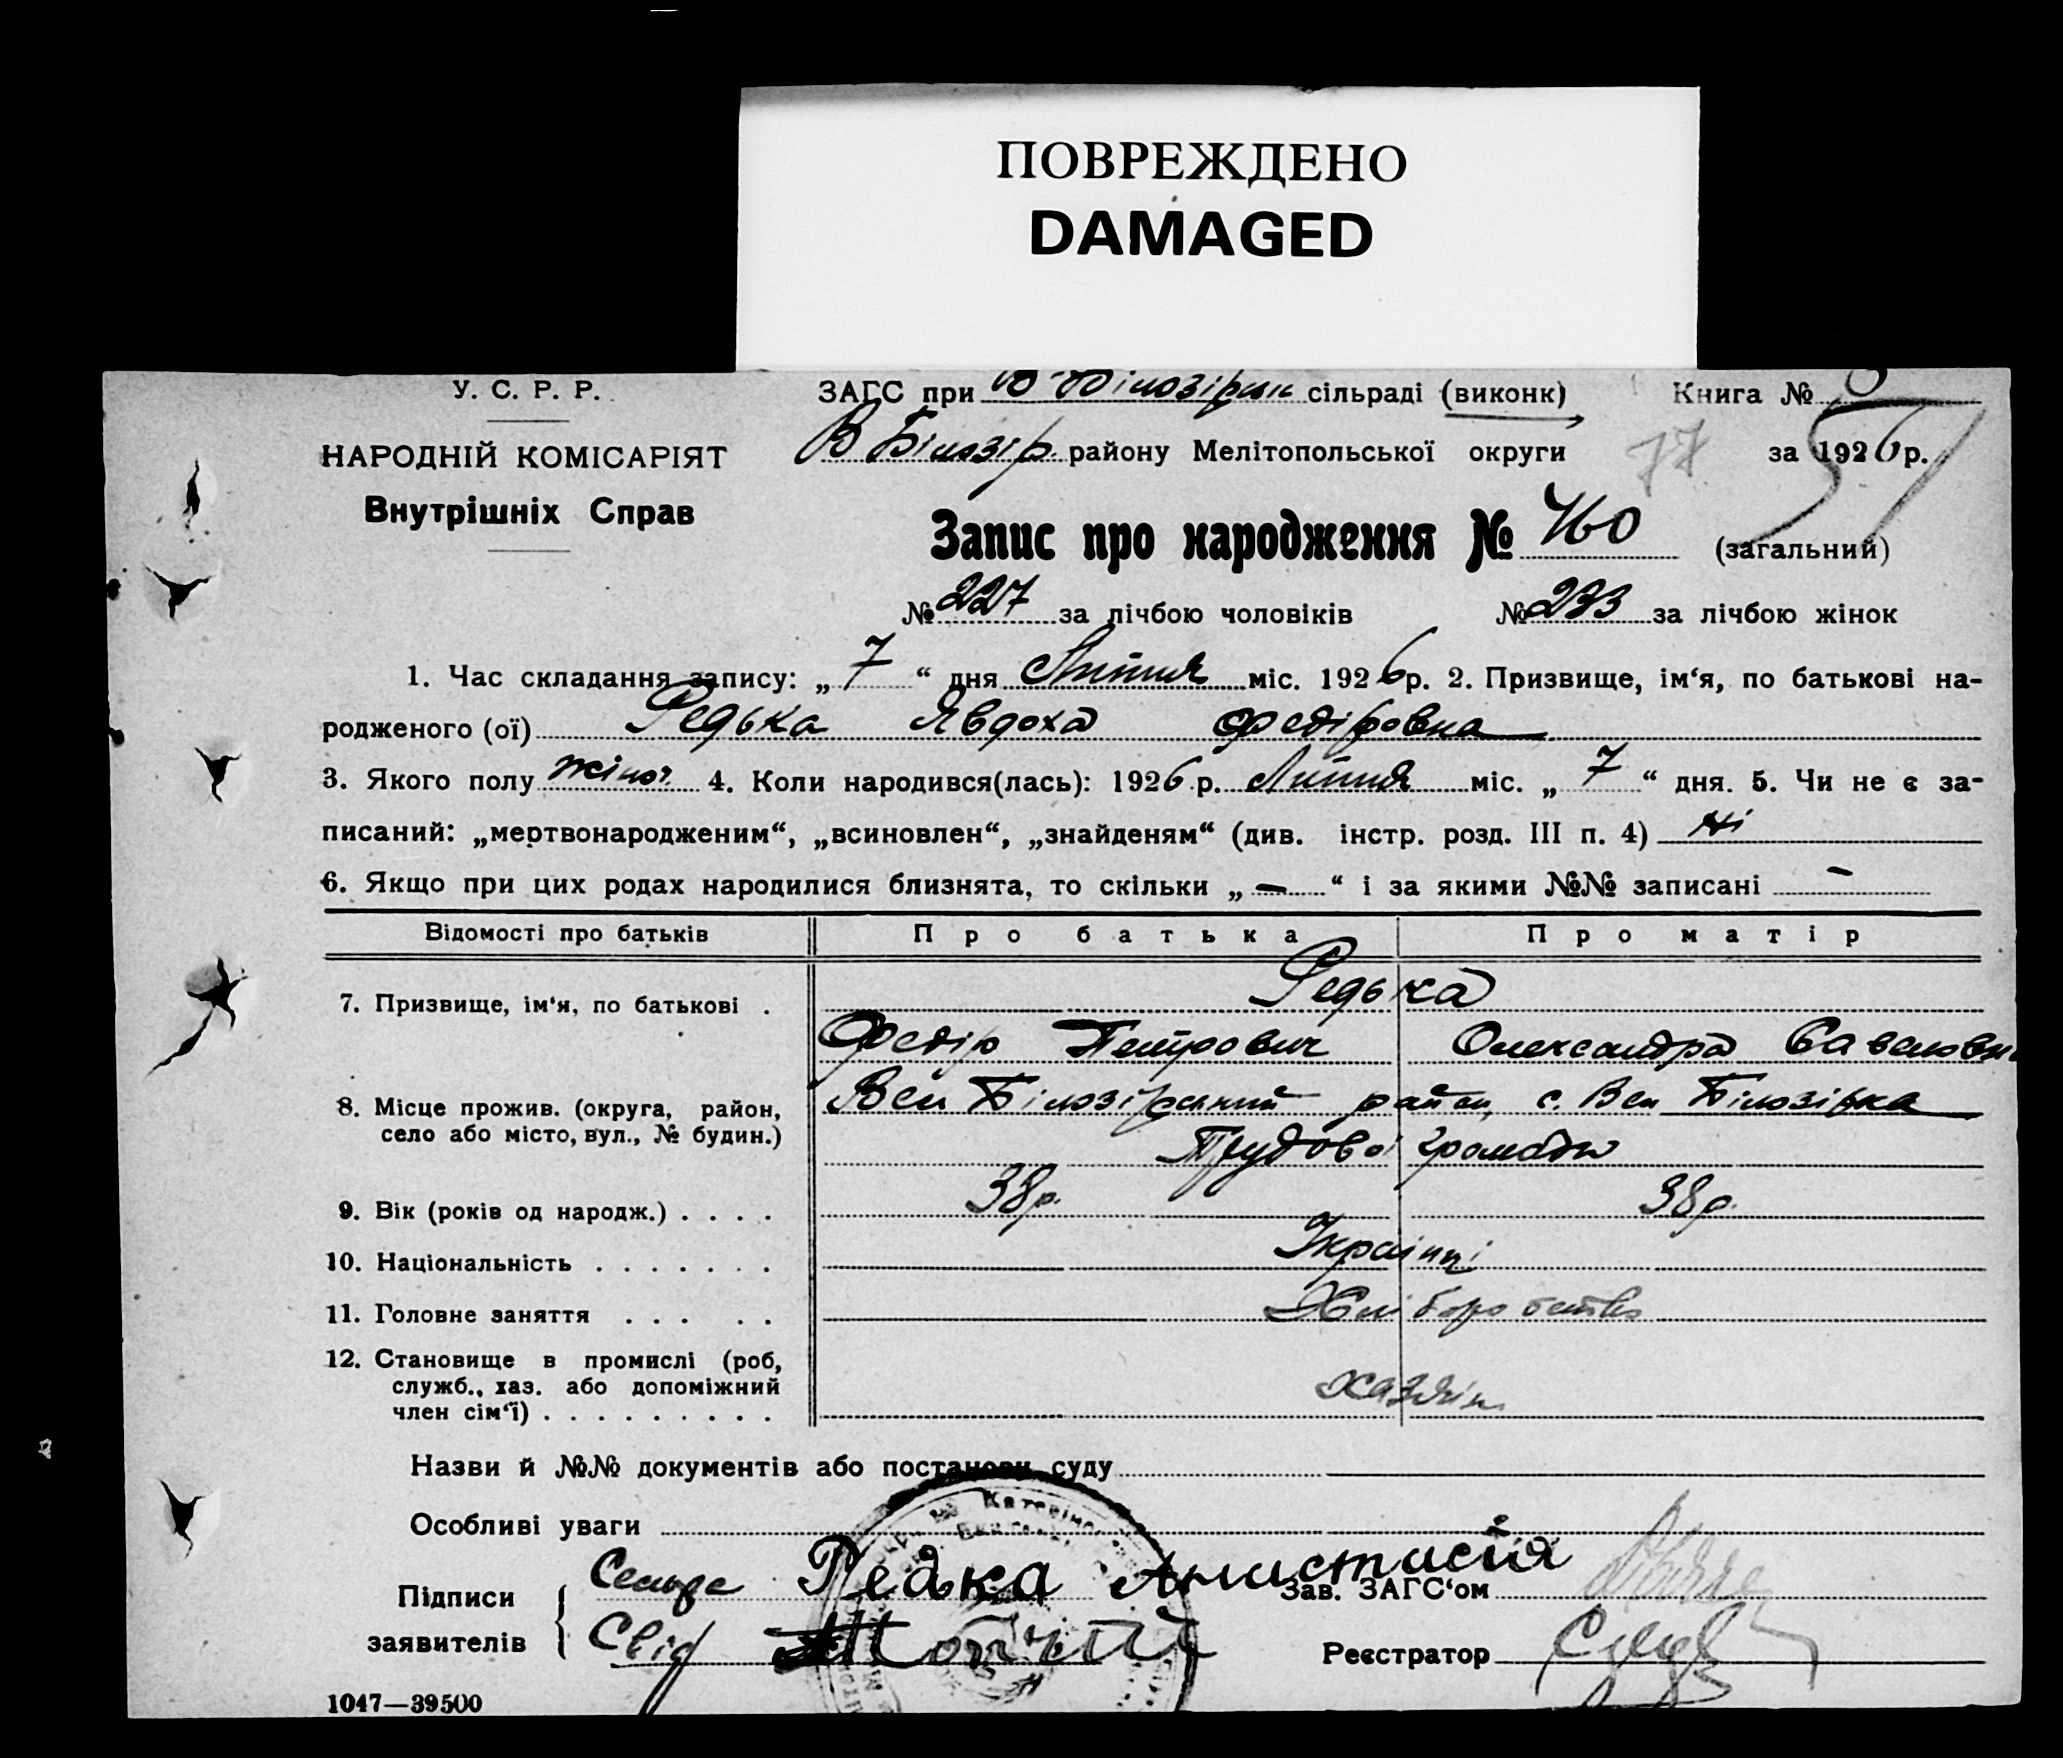 ПОВРЕЖДЕНО
DAMAGED
У. С. Р. Р. ЗАГС при В-Білозірск сільраді (виконк) Книга №
В Білозір. району Мелітопольської округи 77 за 1926 р. 57
НАРОДНІЙ КОМІСАРІЯТ
Внутрішніх Справ
Запис про народження № 460 (загальний)
№ 227 за лічбою чоловіків № 233 за лічбою жінок
1. Час складання запису: „ 7 “ дня Липня міс. 1926 р. 2. Призвище, ім‘я, по батькові на-
родженого (ої) Редька Явдоха Федіровна
3. Якого полу жіноч. 4. Коли народився(лась): 1926 р. Липня міс. „ 7 “ дня. 5. Чи не є за-
писаний: „мертвонародженим“, „всиновлен“, „знайденям“ (див. інстр. розд. III п. 4) ні
6. Якщо при цих родах народилися близнята, то скільки „ — “ і за якими №№ записані —
Відомості про батьків Про батька Про матір
7. Призвище, ім‘я, по батькові . Редька
Федір Петрович Олександра Савеловн
8. Місце прожив. (округа, район, Вел Білозірський район, с. Вел Білозірка
село або місто, вул., № будин.) Трудової громади
9. Вік (років од народж.) . . . . 38 р. 38 р.
10. Національність . . . . . . . Українці
11. Головне заняття . . . . . Хліборобство
12. Становище в промислі (роб,
служб., хаз. або допоміжний хазяїн
член сім‘ї) . . . . . . . . .
Назви й №№ документів або постанови суду
Особливі уваги
Підписи Редька Анистасія Зав. ЗАГС‘ом
заявителів Свід Реєстратор
1047—39500